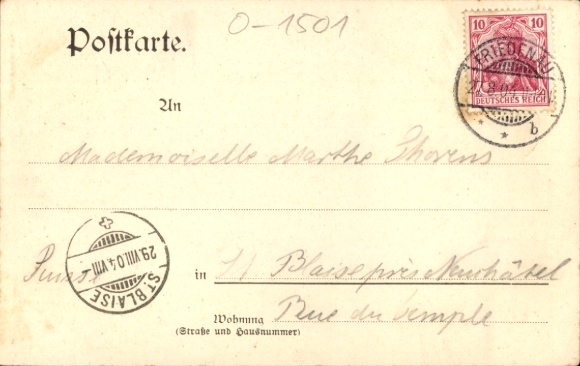 O-1501
Postkarte.
10 10
DEUTSCHES REICH
FRIEDENAU
27.8.04
* * b
An
Mademoiselle Marthe Thorens
29.VIII.04.VIII
ST. BLAISE
Suisse in St Blaise près Neuchâtel
Wohnung Rue du temple
(Straße und Hausnummer)